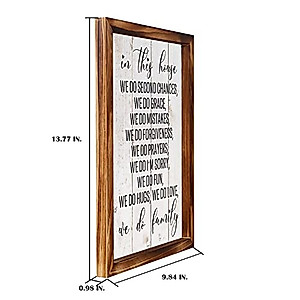 in this house
WE DO SECOND CHANCES,
WE DO GRACE,
WE DO MISTAKES,
WE DO FORGIVENESS,
WE DO PRAYERS,
WE DO I'M SORRY,
WE DO FUN,
WE DO HUGS, WE DO LOVE,
we do family
13.77 IN.
0.98 IN.
9.84 IN.